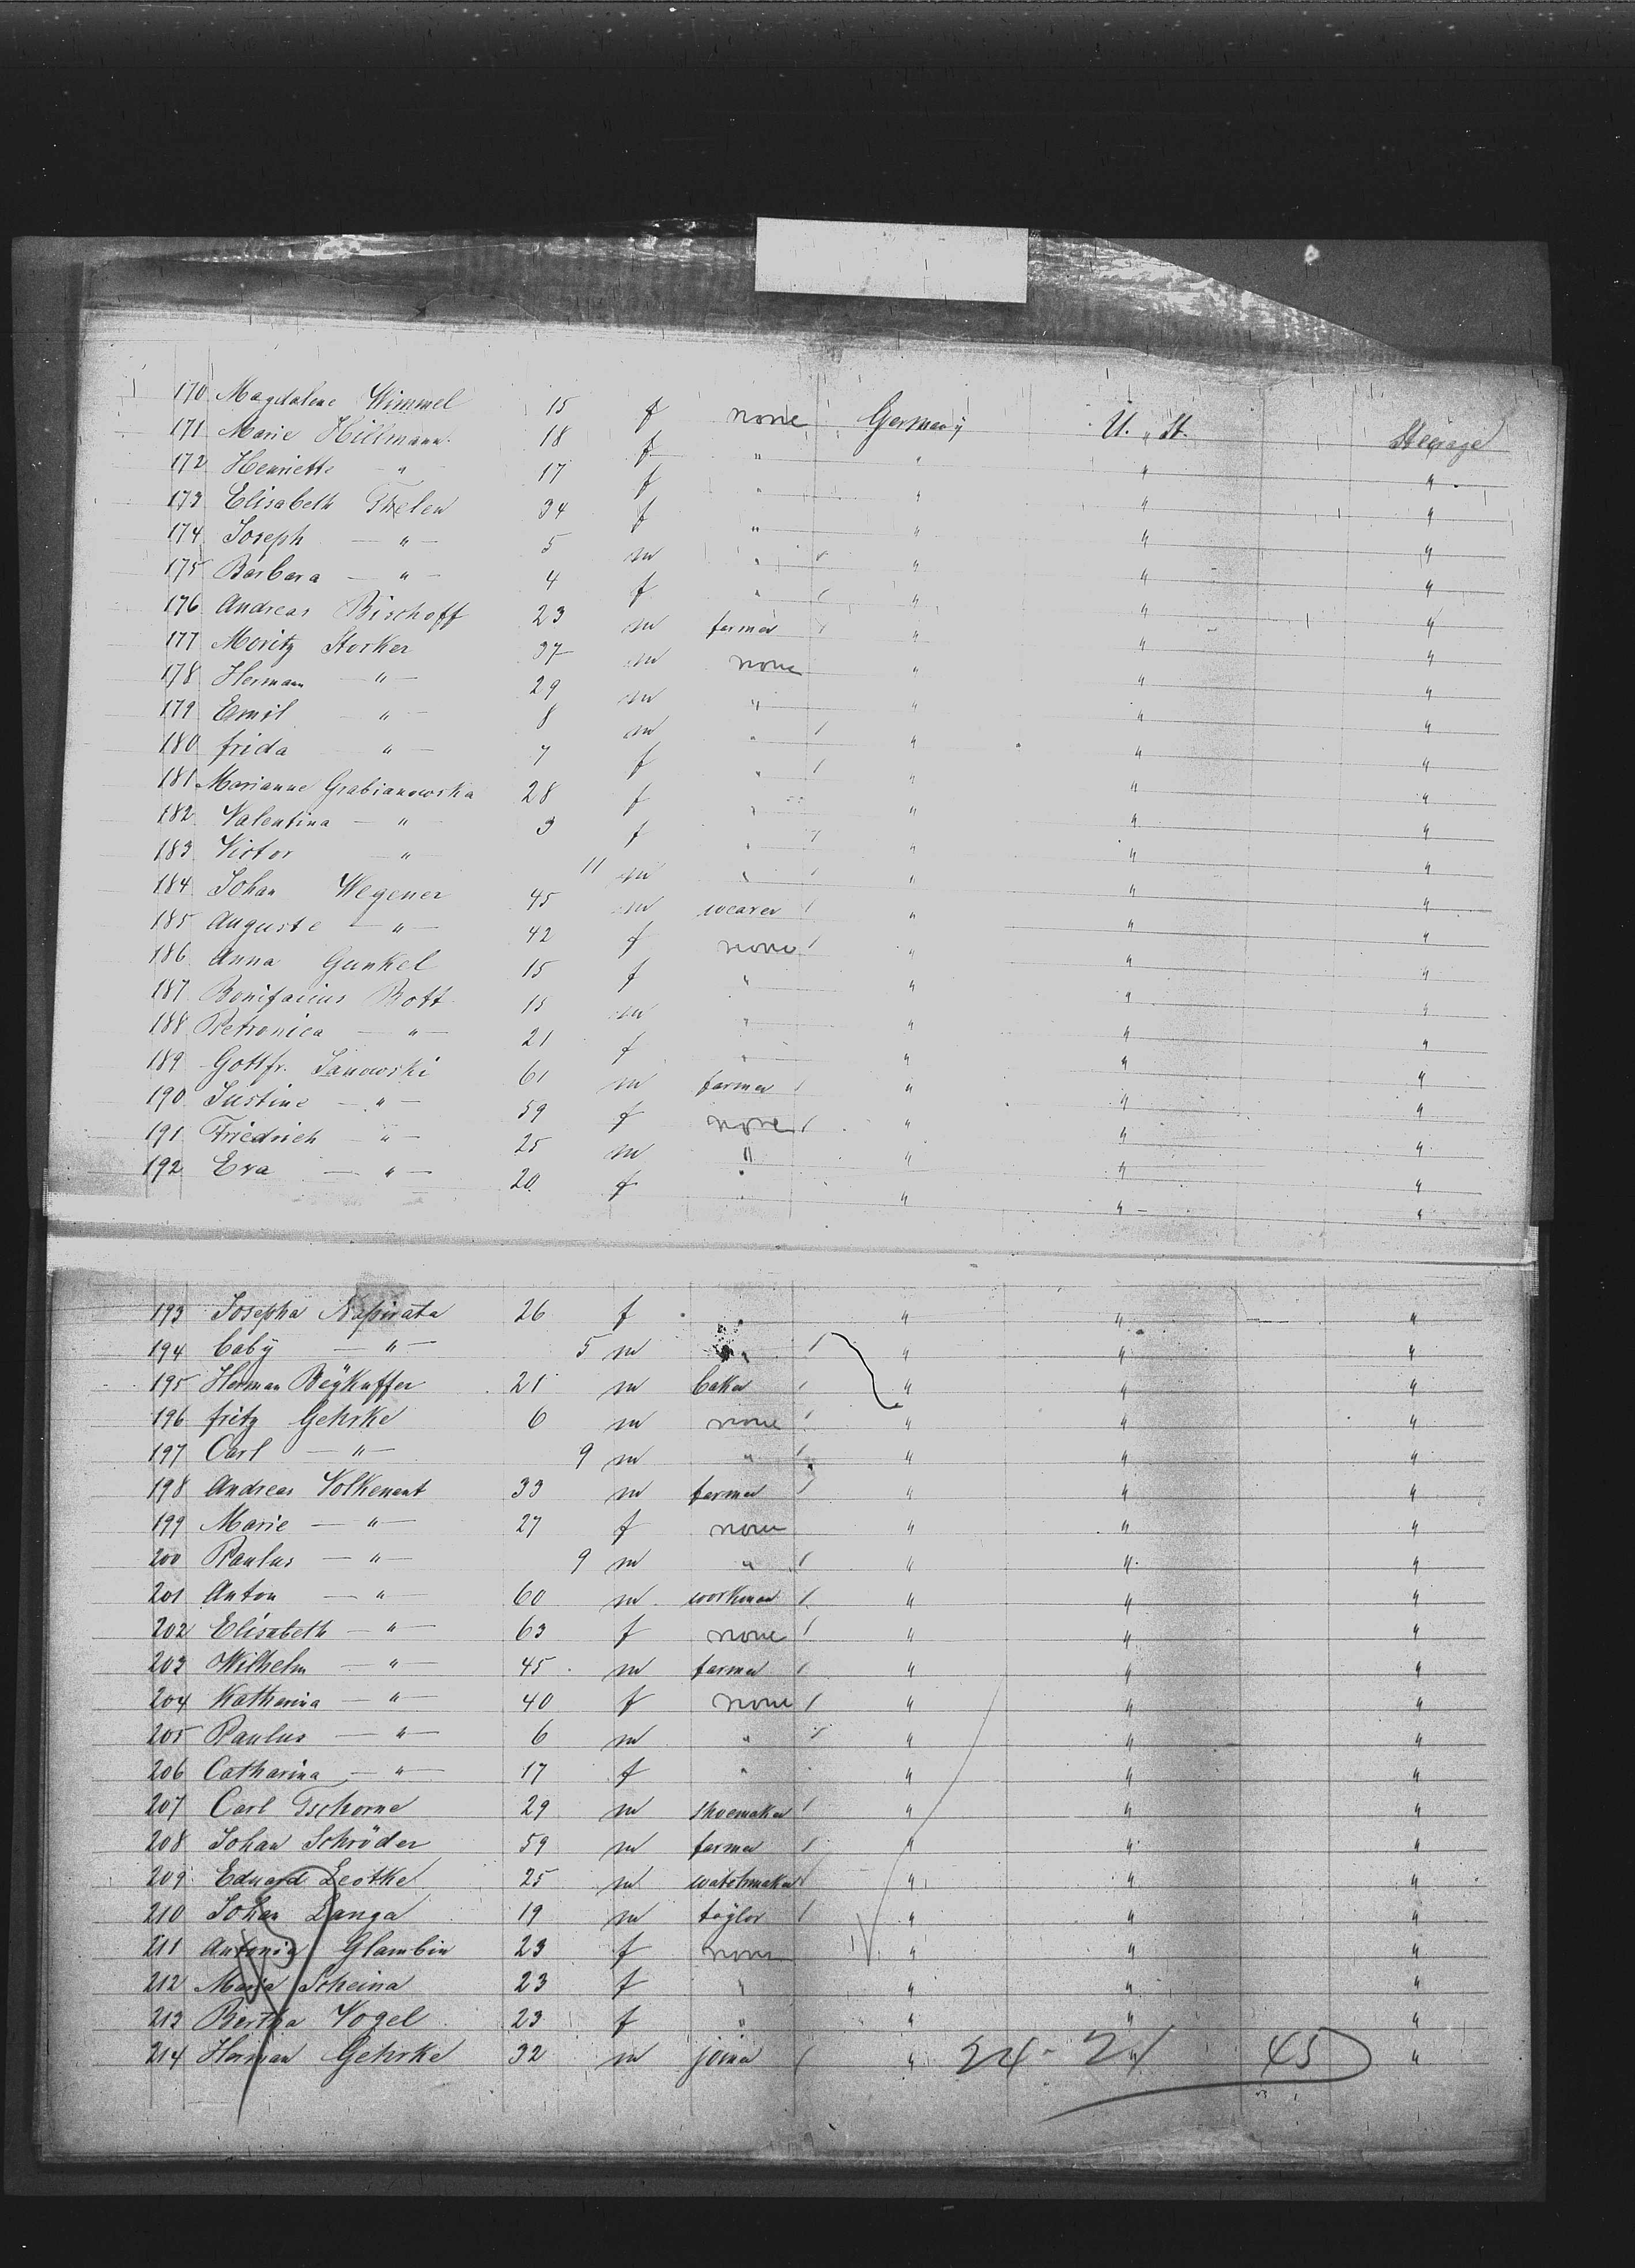 170 Magdalene Wimmel 15 f none Germany U. St. Steerage
171 Marie Hillmann 18 f " " " "
172 Henriette " 17 f " " " "
173 Elisabeth Thelen 34 f " " " "
174 Joseph — " — 5 m " " " "
175 Barbara — " — 4 f " " " "
176 Andreas Bischoff 23 m farmer " " "
177 Moritz Storker 37 m none " " "
178 Hermann — " — 29 m " " " "
179 Emil — " — 8 m " " " "
180 frida " — 7 f " " " "
181 Marianne Grabianowska 28 f " " " "
182 Valentina — " — 3 f " " " "
183 Victor — " 11 m " " " "
184 Johan Wegener 45 m weaver " " "
185 Auguste — " — 42 f none " " "
186 Anna Gunkel 15 f " " " "
187 Bonifacius Rott 15 m " " " "
188 Petronica — " — 21 f " " " "
189 Gottfr. Janowski 61 m farmer " " "
190 Justine — " — 59 f none " " "
191 Friedrich — " — 25 m " " " "
192 Eva — " — 20 f " " " "
193 Josepha Napirata 26 f " " " "
194 baby — " — 5 m " " " "
195 Herman Beÿkuffer 21 m baker " " "
196 fritz Gehrke 6 m none " " "
197 Carl — " — 9 m " " " "
198 Andreas Volkenant 33 m farmer " " "
199 Marie — " — 27 f none " " "
200 Paulus — " — 9 m " " " "
201 Anton — " — 60 m workman " " "
202 Elisabeth — " — 63 f none " " "
203 Wilhelm — " — 45 m farmer " " "
204 Katharina — " — 40 f none " " "
205 Paulus — " — 6 m " " " "
206 Catharina — " — 17 f " " " "
207 Carl Tschorne 29 m shoemaker " " "
208 Johan Schröder 59 m farmer " " "
209 Eduard Leotke 25 m watchmaker " " "
210 Johan Langa 19 m taÿlor " " "
211 Antonia Glambin 23 f none " " "
212 Maria Scheina 23 f " " " "
213 Bertha Vogel 23 f " " " "
214 Herman Gehrke 32 m joiner " 24 - 21 " 45 "